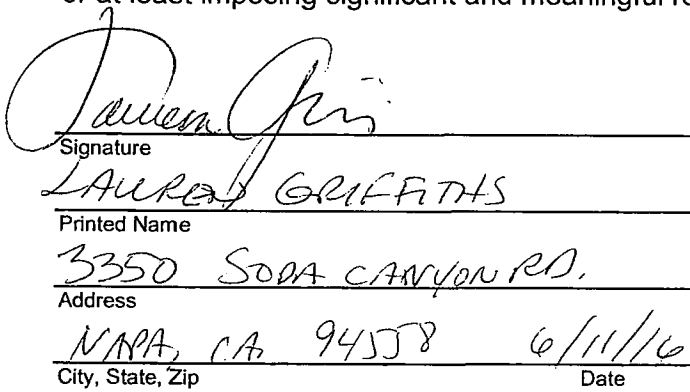 or at least imposing significant and meaningful
Signature
LAUREN GRIFFITHS
Printed Name
3350 SODA CANYON RD.
Address
NAPA, CA 94558 6/11/16
City, State, Zip Date